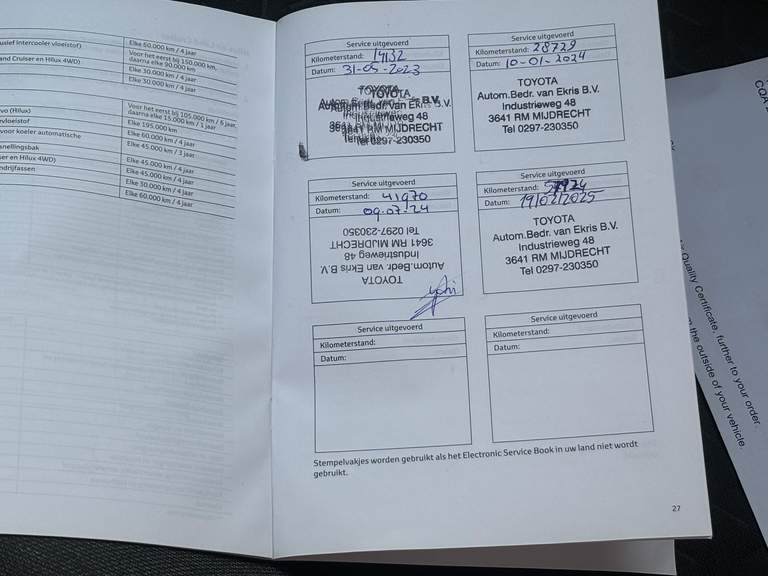 usief intercooler vloeistof)
Elke 60.000 km / 4 jaar
Voor het eerst bij 150.000 km,
daarna elke 90.000 km
and Cruiser en Hilux 4WD)
Elke 30.000 km / 4 jaar
Elke 30.000 km / 4 jaar
vo (Hilux)
Voor het eerst bij 105.000 km / 6 jaar,
daarna elke 15.000 km / 1 jaar
vloeistof
Elke 195.000 km
voor koeler automatische
Elke 60.000 km / 4 jaar
Elke 45.000 km / 3 jaar
snellingsbak
Elke 45.000 km / 4 jaar
ser en Hilux 4WD)
Elke 45.000 km / 4 jaar
ndrijfassen
Elke 30.000 km / 4 jaar
Elke 60.000 km / 4 jaar
Service uitgevoerd
Kilometerstand: 14132
Datum: 31-05-2023
TOYOTA
Autom.Bedr. van Ekris B.V.
Industrieweg 48
3641 RM MIJDRECHT
Tel 0297-230350
Service uitgevoerd
Kilometerstand: 28729
Datum: 10-01-2024
TOYOTA
Autom.Bedr. van Ekris B.V.
Industrieweg 48
3641 RM MIJDRECHT
Tel 0297-230350
Service uitgevoerd
Kilometerstand: 41970
Datum: 09-07-'24
TOYOTA
Autom.Bedr. van Ekris B.V.
Industrieweg 48
3641 RM MIJDRECHT
Tel 0297-230350
Service uitgevoerd
Kilometerstand:
Datum: 19/02/2025
TOYOTA
Autom.Bedr. van Ekris B.V.
Industrieweg 48
3641 RM MIJDRECHT
Tel 0297-230350
Service uitgevoerd
Kilometerstand:
Datum:
Service uitgevoerd
Kilometerstand:
Datum:
Stempelvakjes worden gebruikt als het Electronic Service Book in uw land niet wordt
gebruikt.
27
Quality Certificate, further to your order.
the outside of your vehicle.